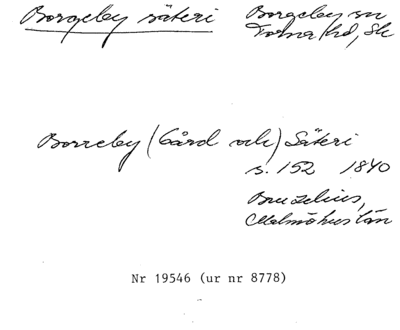 Borgeby säteri
Borgeby sn
Torna hd, Sk
Borreby (Gård och) Säteri
s. 152 1840
Bruzelius,
Malmöhus län
Nr 19546 (ur nr 8778)